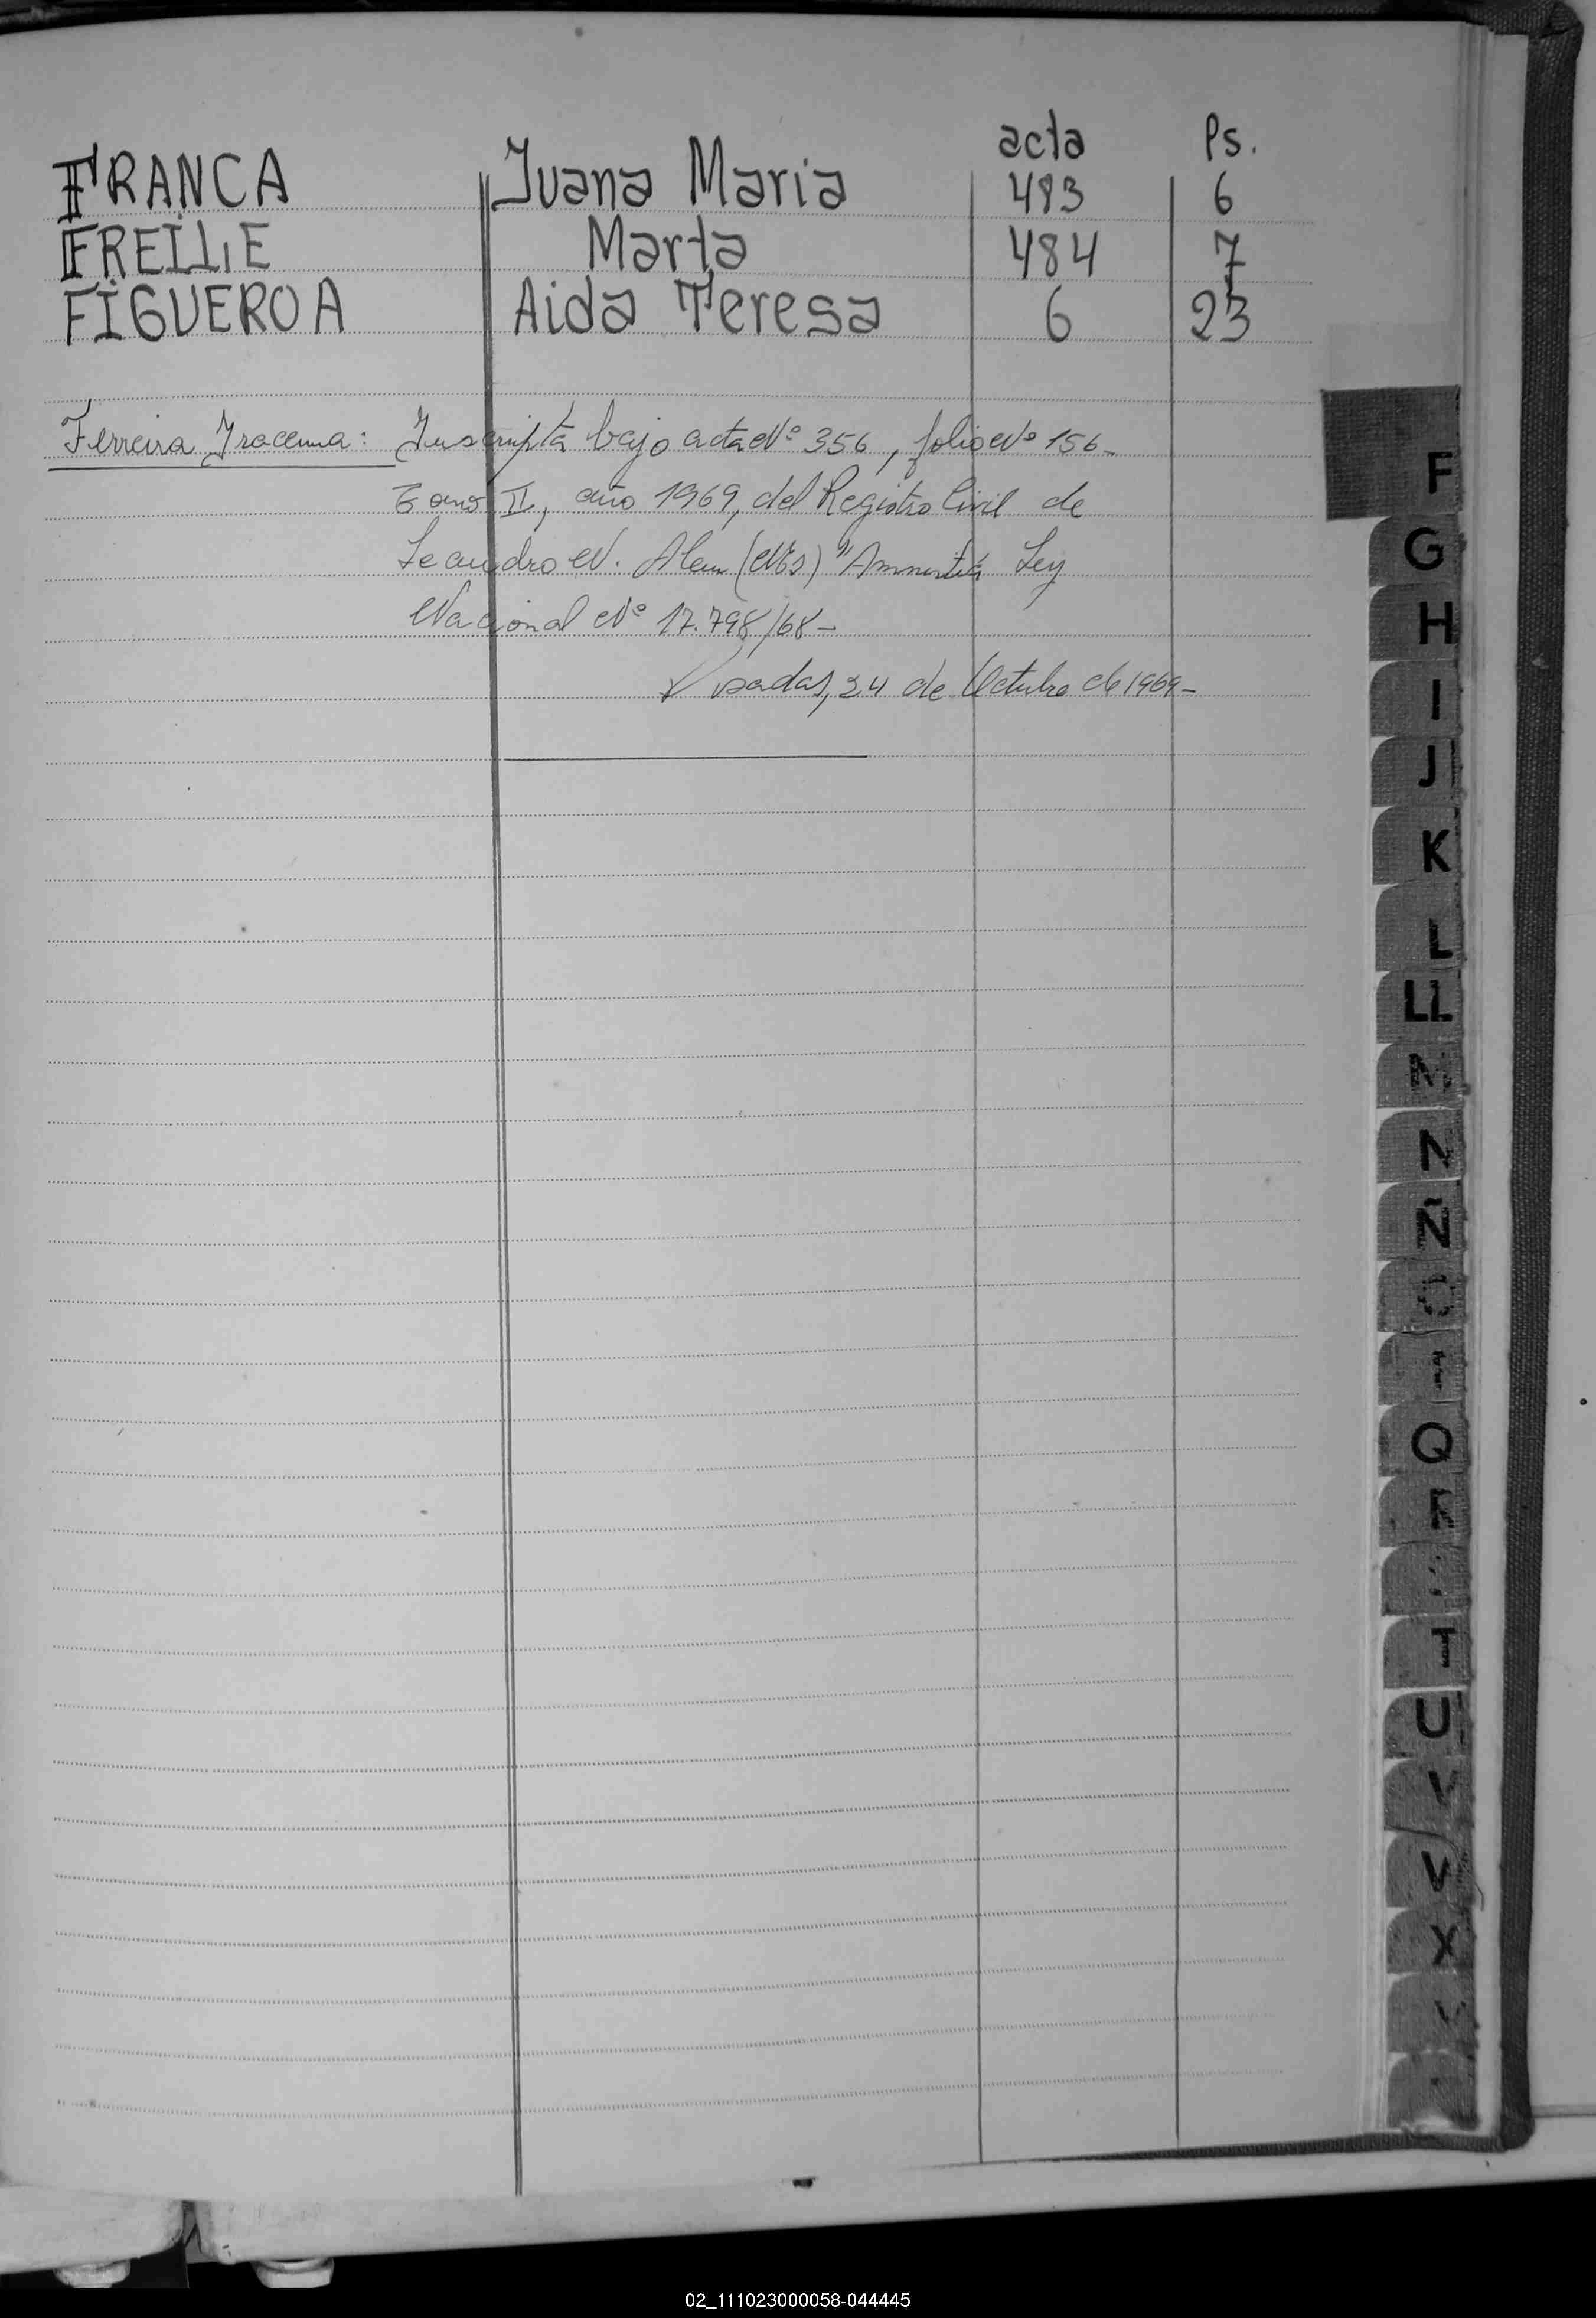 acta Ps.
FRANCA Juana Maria 483 6
FREILE Marta 484 7
FIGUEROA Aida Teresa 6 23
Ferreira Iracema: Inscripta bajo acta Nº 356, folio Nº 156-
Tomo II, año 1969, del Registro Civil de
Leandro N. Alem (Mnes) "Amnistía Ley
Nacional Nº 17.798/68-
Posadas, 24 de Octubre de 1969-
F
G
H
I
J
K
L
LL
M
N
Ñ
Q
T
U
V
V
X
02_111023000058-044445